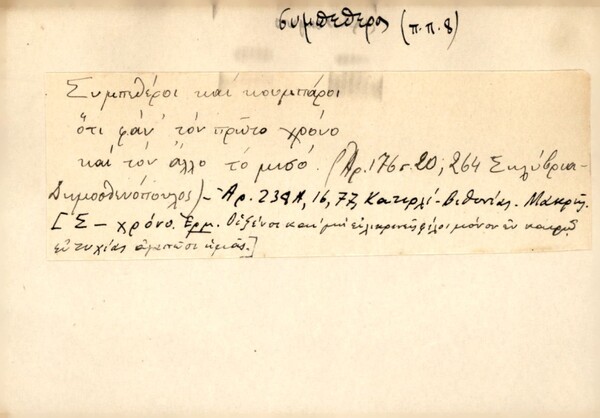 συμπεθερος (π.π. 8)
Συμπεθέροι καί κουμπάροι
ὅτι φάν' τόν πρῶτο χρόνο
καί τόν ἄλλο τό μισό. (Ἀρ. 176 σ. 20; 264 Σηλύβρια-
Δημοσθενόπουλος) - Ἀρ. 238 Α, 16, 77, Κατιρλί-Βιθυνίας. Μακρῆς.
[Σ - χρόνο. Ερμ. Οἱ ξένοι καί μή εἰλικρινεῖς φίλοι μόνον ἐν καιρῷ
εὐτυχίας ἀγαπῶσι ἡμᾶς.]